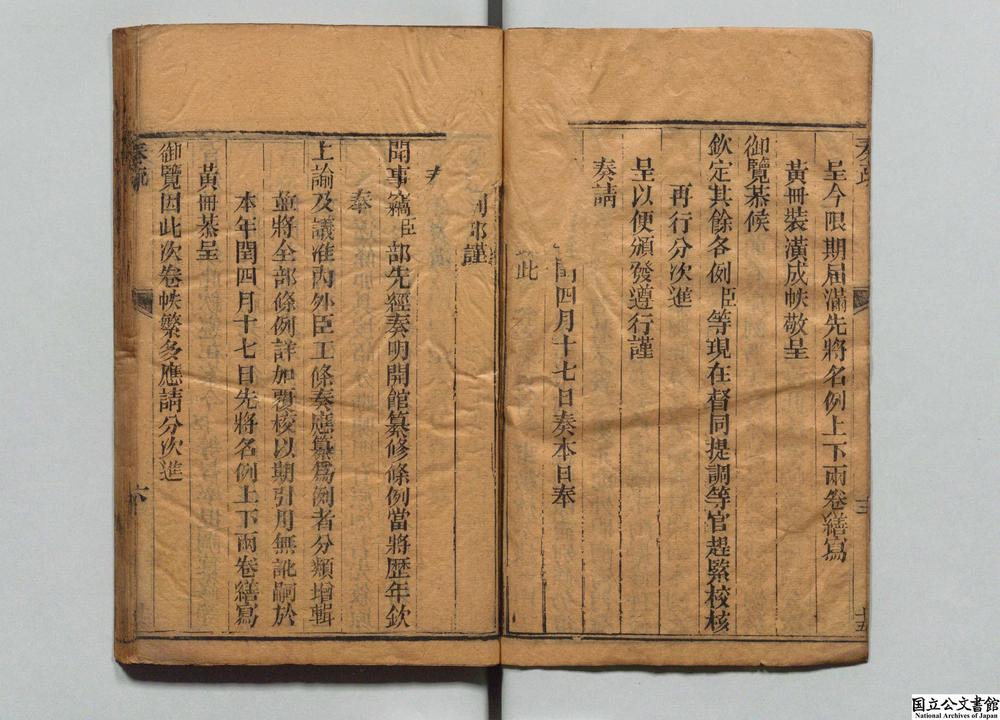 呈今限期屆滿先將名例上下兩卷繕寫
黃冊裝潢成帙敬呈
御覽恭候
欽定其餘各例臣等現在督同提調等官趕緊校核
再行分次進
呈以便頒發遵行謹
奏請
四月十七日奏本日奉
此
謹
聞事竊臣部先經奏明開館纂修條例當將歷年欽
奉
上諭及議准內外臣工條奏應纂為例者分類增輯
並將全部條例詳加覆校以期引用無訛嗣於
本年閏四月十七日先將名例上下兩卷繕寫
黃冊恭呈
御覽因此次卷帙繁多應請分次進
国立公文書館
National Archives of Japan